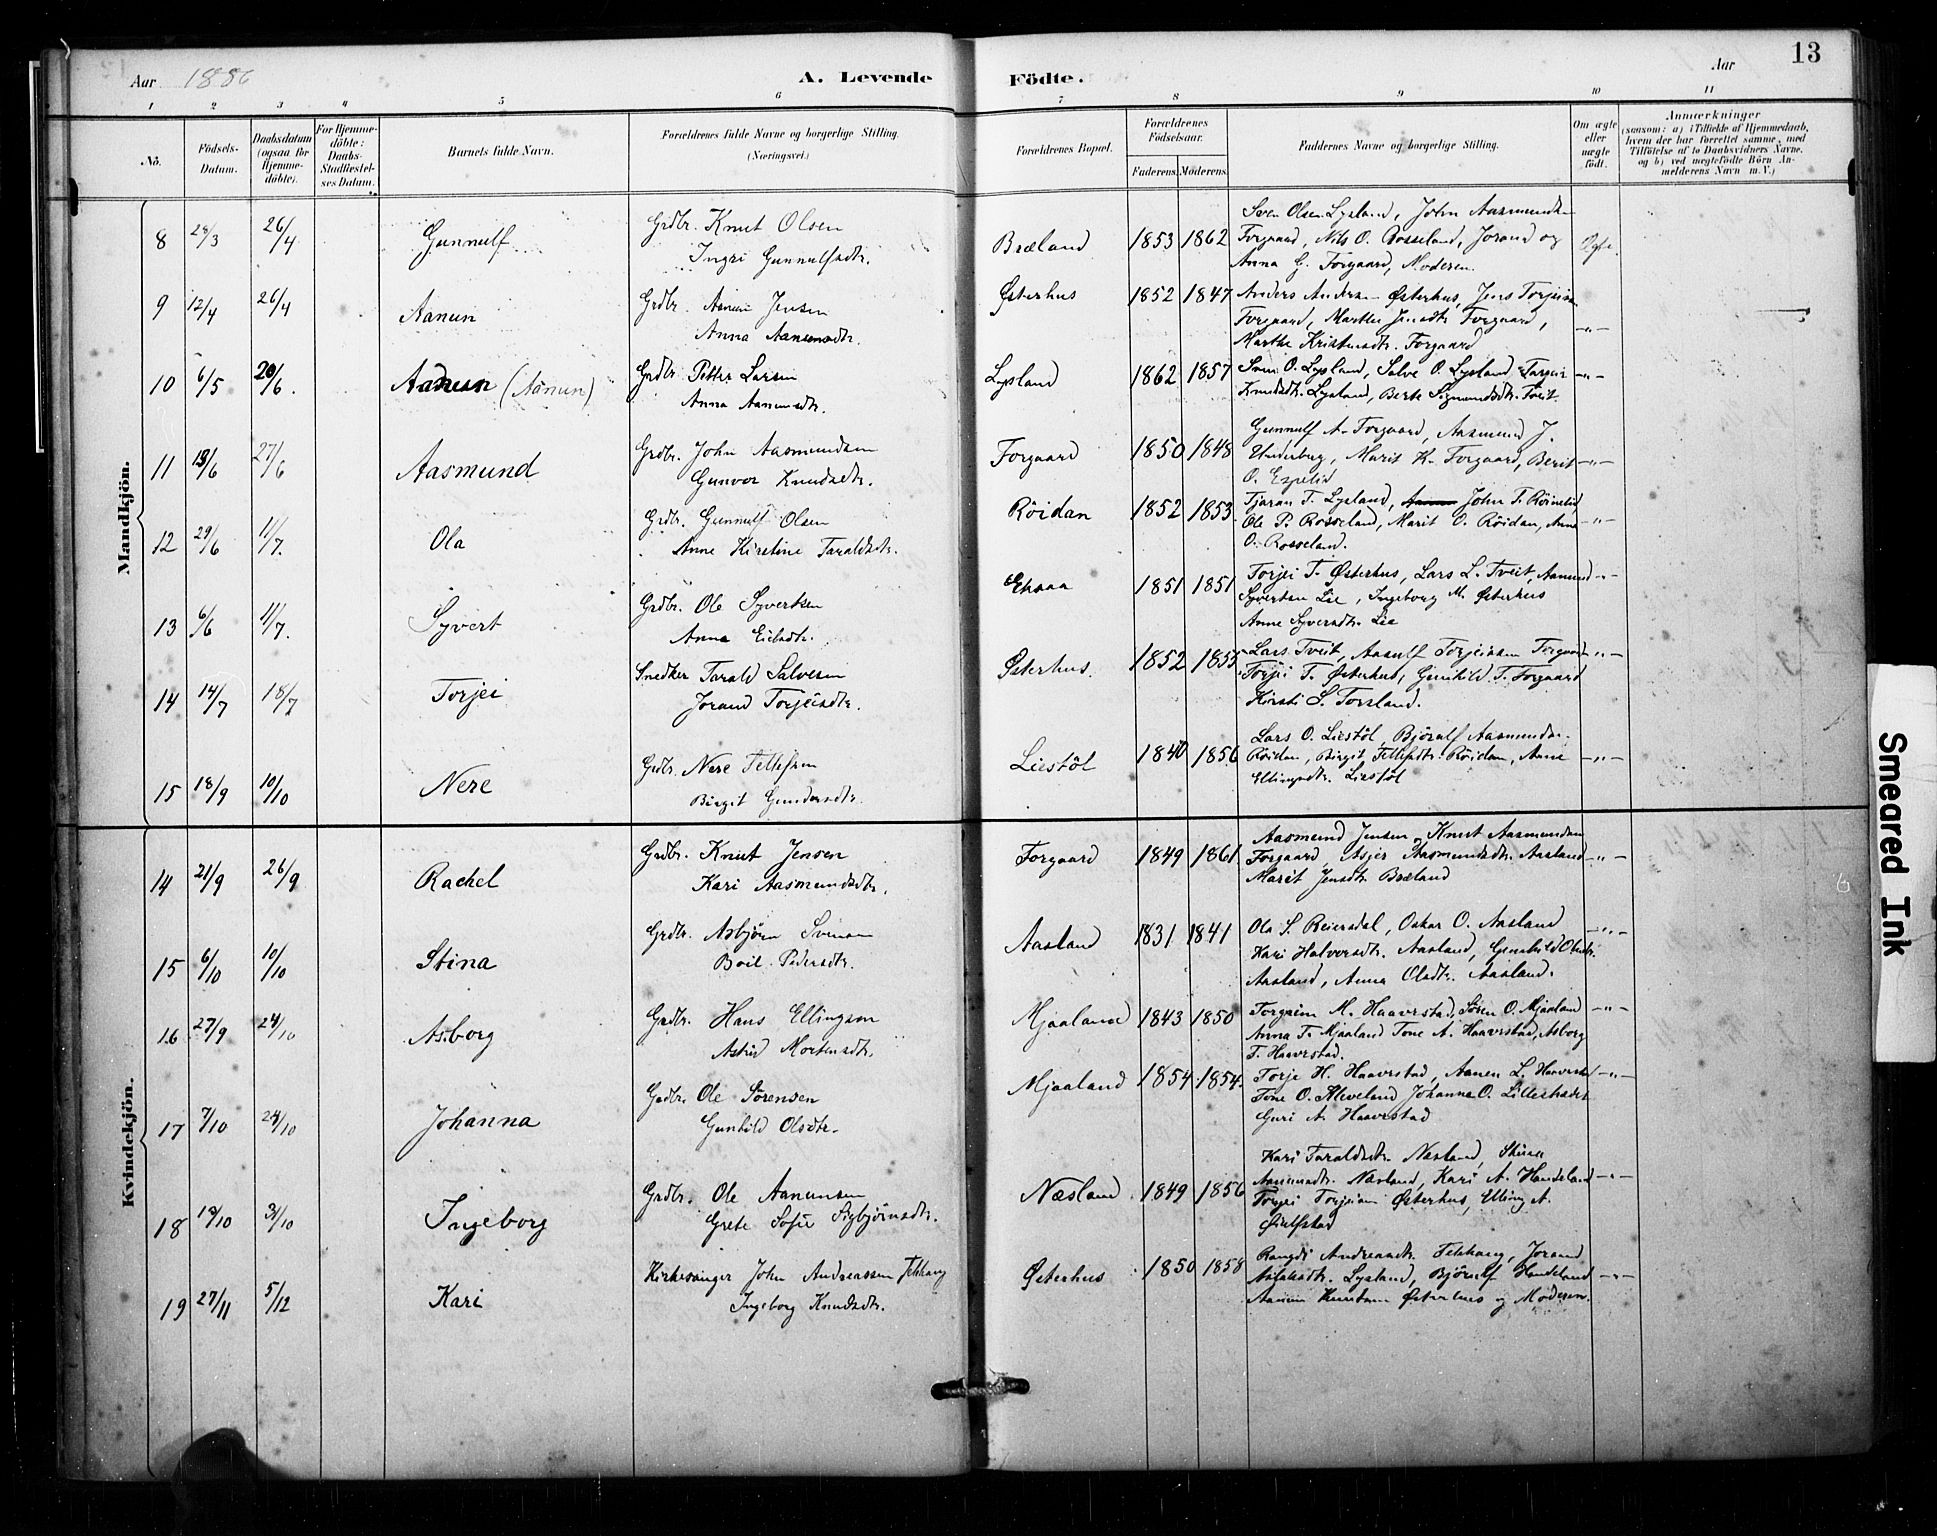 Aar 1886
A. Levende Födte.
Aar
13
1 2 3 4 5 6 7 8 9 10 11
No.
Födsels-Datum.
Daabsdatum (ogsaa for Hjemme-döbte).
For Hjemme-döbte: Daabs-Stadfæstel-ses Datum.
Barnets fulde Navn.
Forældrenes fulde Navne og borgerlige Stilling. (Næringsvei.)
Forældrenes Bopæl.
Forældrenes Födselsaar.
Faderens. Moderens.
Faddernes Navne og borgerlige Stilling.
Om ægte eller uægte födt.
Anmærkninger (saasom: a) i Tilfælde af Hjemmedaab, hvem der har forrettet samme, med Tilföielse af to Daabsvidners Navne, og b) ved uegtefödte Börn Anmelderens Navn m. V.)
Mandkjön.
8 28/3 26/4 Gunnulf Grdbr. Knut Olsen
Ingri Gunnulfsdtr.
Bræland 1853 1862
Sven Olsen Lysland, John Aasmundsen
Forgaard, Nils O. Rosseland, Jorand og
Anna G. Forgaard, Moderen.
Ægte.
9 12/4 26/4 Aanun Grdbr. Aanun Jensen
Anna Aanensdtr.
Østerhus 1852 1847
Anders Anders. Østerhus, Jens Torjeisen
Forgaard, Marthe Jensdtr. Forgaard,
Marthe Kristensdtr. Forgaard
-"-
10 6/5 20/6. Aanun (Aanun) Grdbr. Petter Larsen
Anna Aanunsdtr.
Lysland 1862 1857
Sven O. Lysland, Salve O. Lysland, Torgeir
Knudsdtr. Lysland, Berte Sigmundsdtr. Tveit
-"-
11 13/6 27/6 Aasmund Grdbr. John Aasmundsen
Gunvor Knudsdtr.
Forgaard 1850 1848
Gunnulf A. Forgaard, Aasmund J.
Underberg, Marit K. Forgaard, Berit
O. Espelid
-"-
12 29/6 11/7. Ola Grdbr. Gunnulf Olsen
Anne Kirstine Taraldsdtr.
Röidan 1852 1853
Tjaran T. Lysland, John T. Röinelid,
Ole P. Rosseland, Marit O. Röidan, Anne
O. Rosseland.
-"-
13 6/6 11/7. Syvert Grdbr. Ole Syvertsen
Anna Eielsdtr.
1851 1851
Torjei T. Østerhus, Lars L. Tveit, Aanund
Syvertsen Lie, Ingeborg M. Østerhus
Anne Syversdtr. Lie
-"-
14 14/7 18/7 Torjei Snedker Tarald Salvesen
Jorand Torjeisdtr.
Østerhus. 1852 1855
Lars Tveit, Aasulf Torjeisen Forgaard
Torjei T. Østerhus, Gunhild T. Forgaard
Kirsti S. Torsland.
-"-
15 18/9 10/10 Nere Grdbr. Nere Tellefsen
Birgit Gundersdtr.
Liestöl 1840 1856
Lars O. Liestöl, Björulf Aasmunds.
Röidan, Birgit Tellefsdtr. Röidan, Anne
Ellingsdtr. Liestöl
-"-
Kvindekjön.
14 21/9 26/9 Rachel Grdbr. Knut Jensen
Kari Aasmundsdtr.
Forgaard 1849 1861
Aasmund Jensen, Knut Aasmundsen
Forgaard, Asjer Aasmundsdtr. Aasland
Marit Jensdtr. Bræland
-"-
15 6/10 10/10 Stina Grdbr. Asbjörn Svensen
Boil Pedersdtr.
Aasland 1831 1841
Ola S. Reiersdal, Oskar O. Aasland
Kari Halversdtr. Aasland, Gunhild Olsdtr.
Aasland, Anna Olsdtr. Aasland.
-"-
16 27/9 24/10 Asborg Grdbr. Hans Ellingsen
Astrid Mortensdtr.
Mjaaland 1843 1850
Torgrim M. Haaverstad, Sören O. Mjaaland
Anna T. Mjaaland Tone A. Haaverstad, Asborg
T. Haaverstad.
-"-
17 7/10 24/10 Johanna Grdbr. Ole Sörensen
Gunhild Olsdtr.
Mjaaland 1854 1854
Torje H. Haaverstad, Aanen L. Haaverstad
Tone O. Kleveland Johanna O. Lillestraden
Guri A. Haaverstad
-"-
18 18/10 31/10 Ingeborg Grdbr. Ole Aanunsen
Grete Sofie Sigbjörnsdtr.
Næsland 1849 1856
Kari Taraldsdtr. Næsland,
Aanunsdtr. Næsland, Kari A. Handeland
Torjei Torjeisen Østerhus, Elling A.
-"-
19 27/11 5/12 Kari Kirkesanger John Andreassen Felthaug
Ingeborg Knudsdtr.
Østerhus 1850 1858
Rangdi Andreasdtr. Felthaug, Jorand
Lysland, Björulf Handeland
Aanun Knutsen Østerhus og Moderen.
-"-
6
Smeared Ink